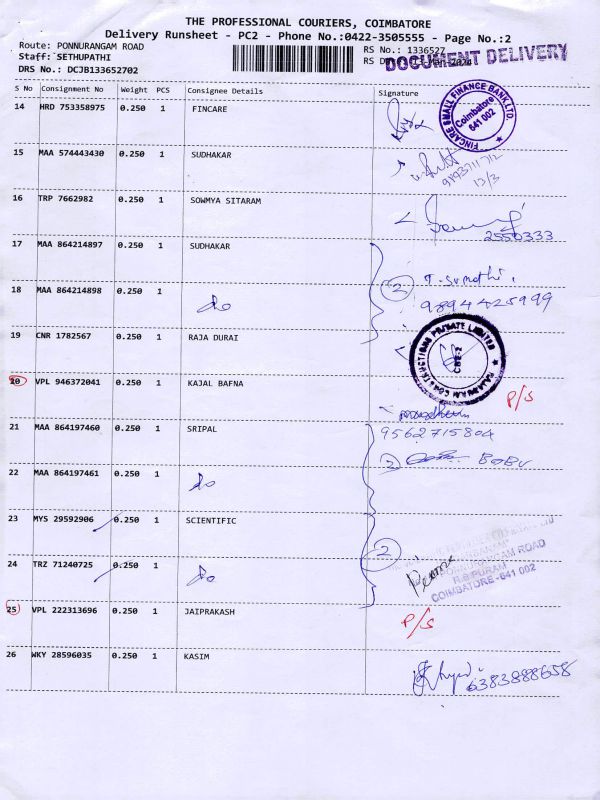 THE PROFESSIONAL COURIERS, COIMBATORE
Delivery Runsheet - PC2 - Phone No.:0422-3505555 - Page No.:2
Route: PONNURANGAM ROAD
RS No.: 1336527
Staff: SETHUPATHI
DOCUMENT DELIVERY
DRS No.: DCJB133652702
S No Consignment No Weight PCS Consignee Details Signature
14 HRD 753358975 0.250 1 FINCARE
FINCARE SMALL FINANCE BANK LTD.
Coimbatore
641 002
15 MAA 574443430 0.250 1 SUDHAKAR
9193711712
13/3
16 TRP 7662982 0.250 1 SOWMYA SITARAM
2550333
17 MAA 864214897 0.250 1 SUDHAKAR
2 T. Sumathi.
18 MAA 864214898 0.250 1 do
9894425999
19 CNR 1782567 0.250 1 RAJA DURAI
CONSTRUCTIONS PRIVATE LIMITED
CBE-2
20 VPL 946372041 0.250 1 KAJAL BAFNA
P/S
21 MAA 864197460 0.250 1 SRIPAL
9562715804
2 BABU
22 MAA 864197461 0.250 1 do
23 MYS 29592906 0.250 1 SCIENTIFIC
2
24 TRZ 71240725 0.250 1 do
R.S.PURAM
COIMBATORE-641 002
25 VPL 222313696 0.250 1 JAIPRAKASH
P/S
26 WKY 28596035 0.250 1 KASIM
6383888658